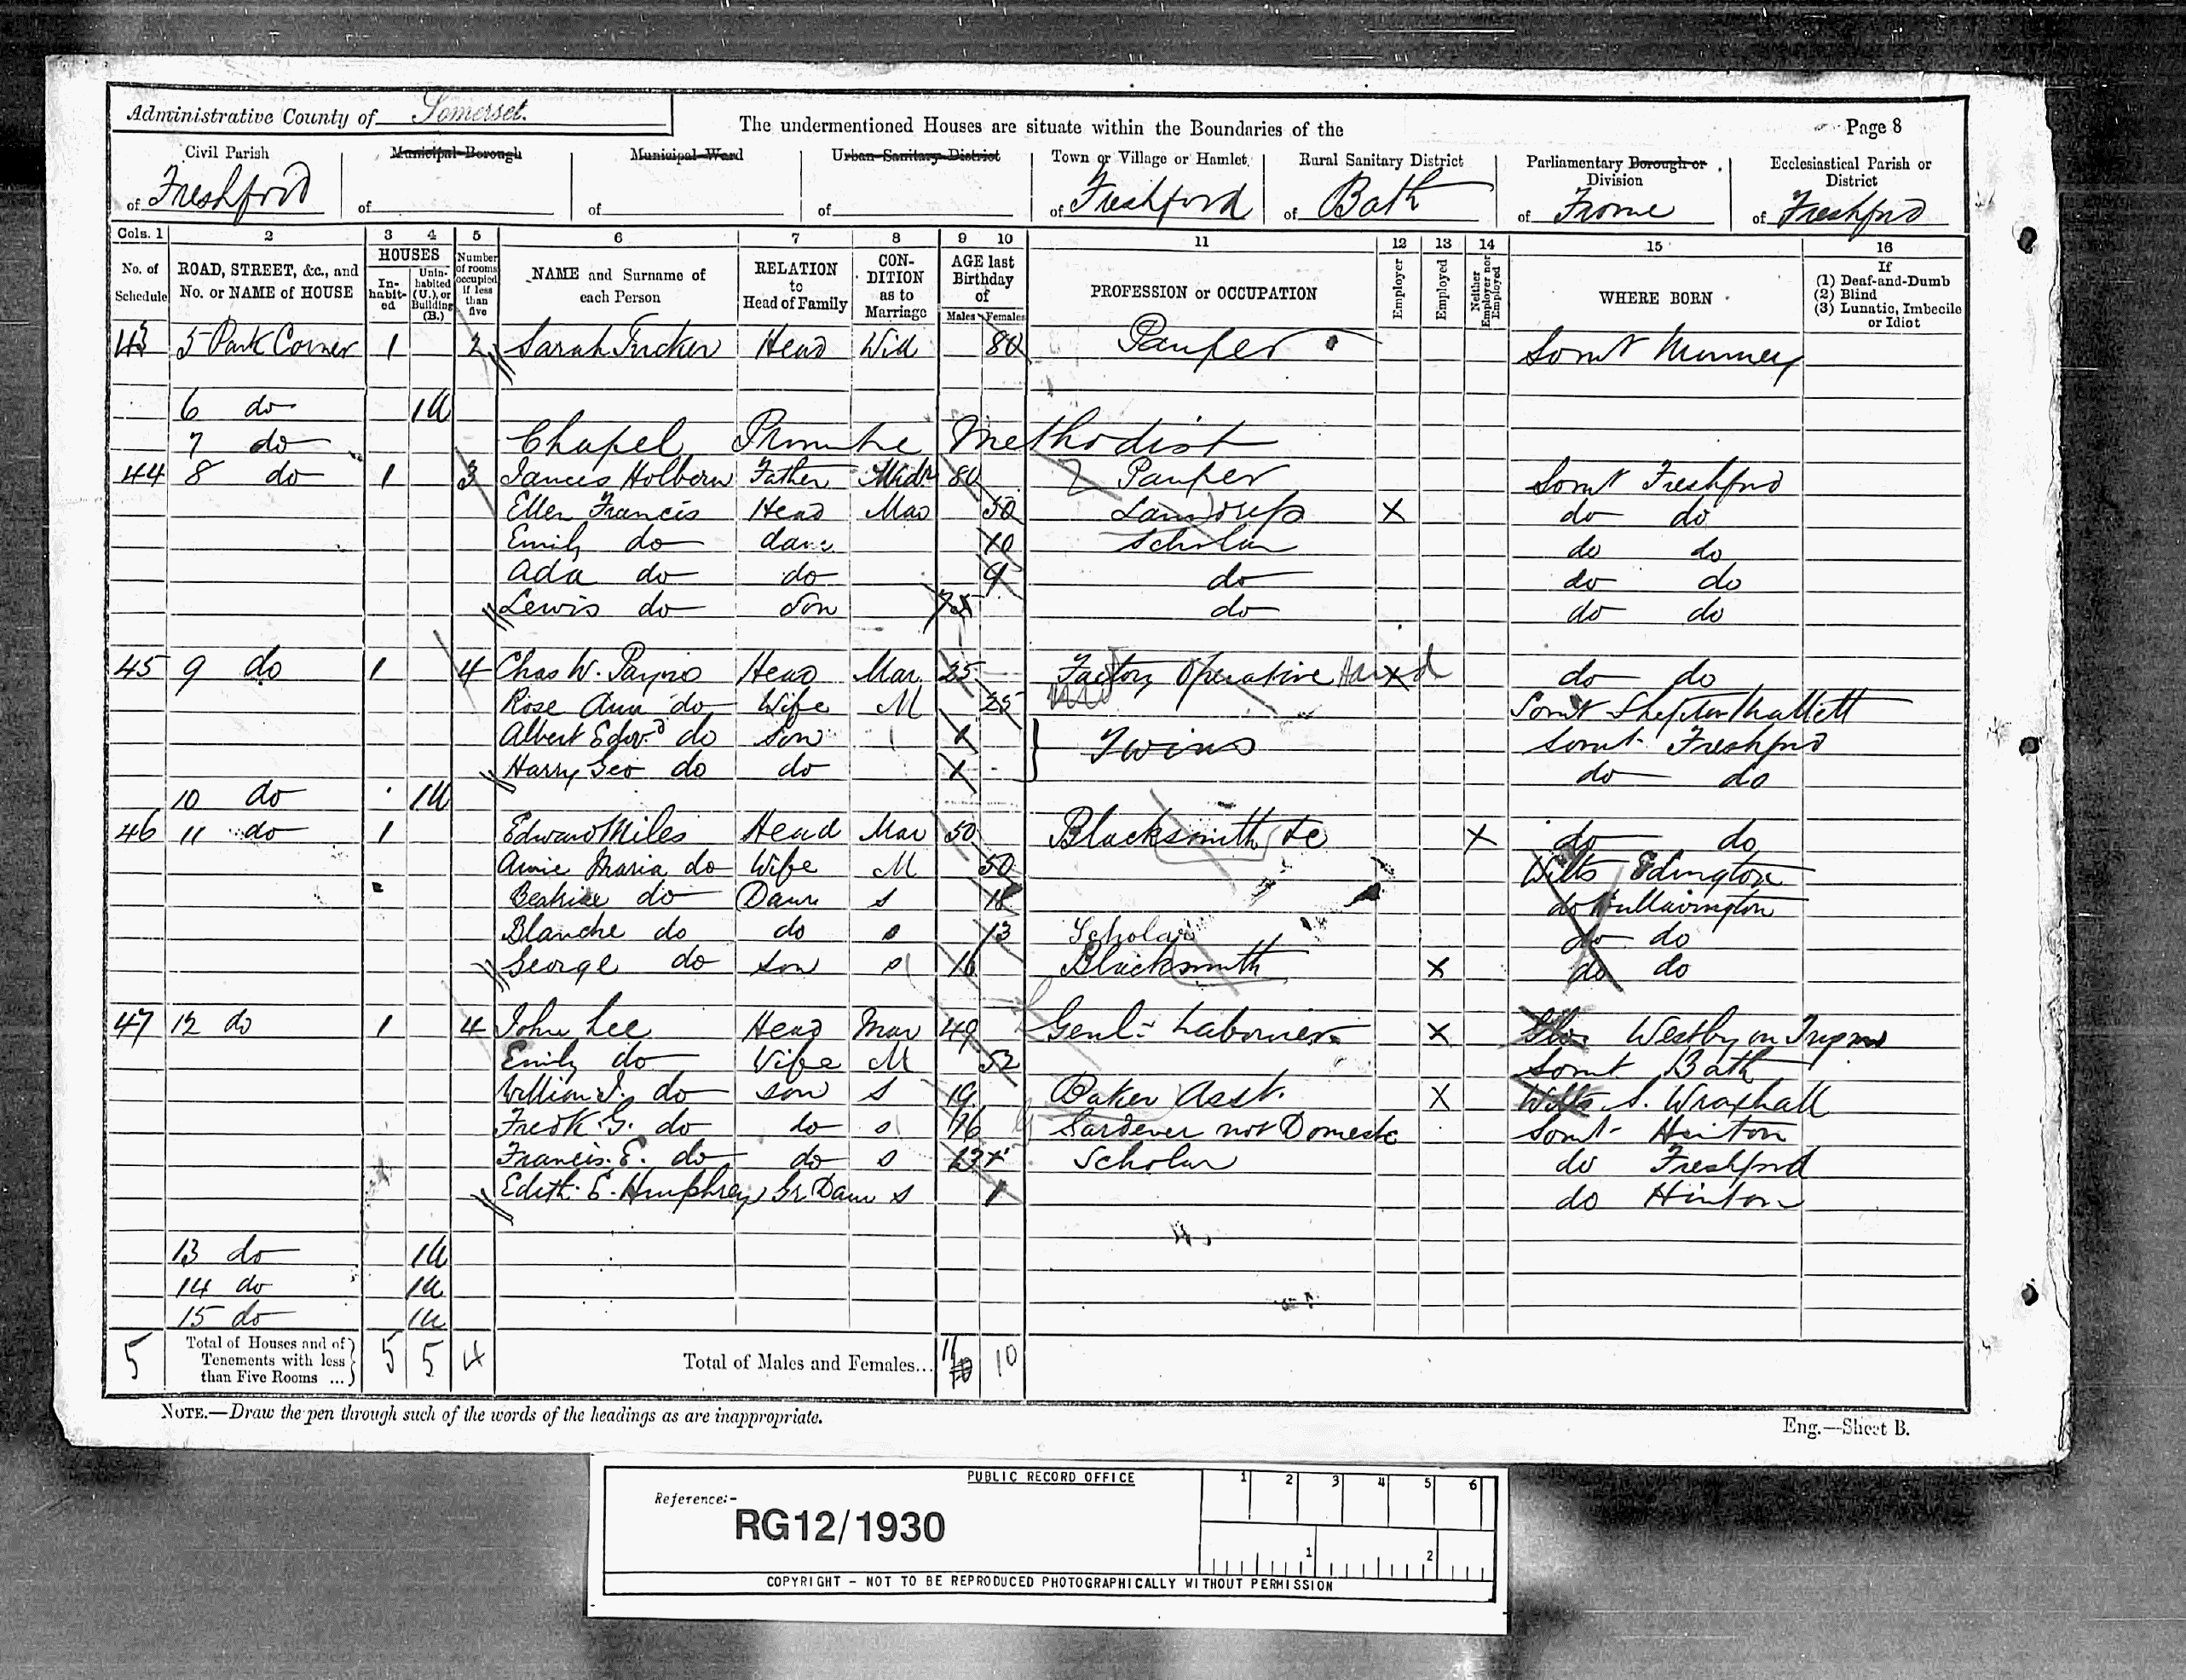 Administrative County of Somerset.
The undermentioned Houses are situate within the Boundaries of the
Page 8
Civil Parish of Freshford
Municipal Borough of
Municipal Ward of
Urban Sanitary District of
Town or Village or Hamlet of Freshford
Rural Sanitary District of Bath
Parliamentary Borough or Division of Frome
Ecclesiastical Parish or District of Freshford
Cols. 1 2 3 4 5 6 7 8 9 10 11 12 13 14 15 16
No. of Schedule
ROAD, STREET, &c., and No. or NAME of HOUSE
HOUSES
In-habit-ed
Unin-habited (U.), or Building (B.)
Number of rooms occupied if less than five
NAME and Surname of each Person
RELATION to Head of Family
CON-DITION as to Marriage
AGE last Birthday of
Males Females
PROFESSION or OCCUPATION
Employer
Employed
Neither Employer nor Employed
WHERE BORN
If (1) Deaf-and-Dumb (2) Blind (3) Lunatic, Imbecile or Idiot
43 5 Park Corner 1 2 Sarah Tucker Head Wid 80 Pauper Somt Nunney
6 do 1U
7 do Chapel Primitive Methodist
44 8 do 1 3 James Holborn Father Widr 80 Pauper Somt Freshford
Ellen Francis Head Mar 50 Laundress X do do
Emily do daur 10 Scholar do do
Ada do do 9 do do do
Lewis do Son do do do
45 9 do 1 4 Chas W. Head Mar 25 Factory Operative Hand X do do
Rose Ann do Wife M 25 Somt Shepton Mallett
Albert Edwd do Son Twins Somt Freshford
Harry Geo do do do do
10 do 1U
46 11 do 1 Edward Miles Head Mar 50 Blacksmith &c X do do
Annie Maria do Wife M 50 Wilts Edington
Beatrice do Daur S 18 do
Blanche do do S 13 Scholar do do
George do Son S 16 Blacksmith X do do
47 12 do 1 4 John Lee Head Mar 49 Genl Labourer X Glo. Westbury on
Emily do Wife M 52 Somt Bath
William J. do Son S 19 Baker Asst. X Wilts S. Wraxhall
Fredk G. do do S 16 Gardener not Domestc Somt Hinton
Francis. E. do do S 13 Scholar do Freshford
Edith E. Humphrey Gr. Daur S 1 do Hinton
13 do 1U
14 do 1U
15 do 1U
5 Total of Houses and of Tenements with less than Five Rooms ... 5 5 4 Total of Males and Females... 11 10
NOTE.—Draw the pen through such of the words of the headings as are inappropriate.
Eng.—Sheet B.
PUBLIC RECORD OFFICE
1 2 3 4 5 6
Reference:-
RG12/1930
1 2
COPYRIGHT - NOT TO BE REPRODUCED PHOTOGRAPHICALLY WITHOUT PERMISSION